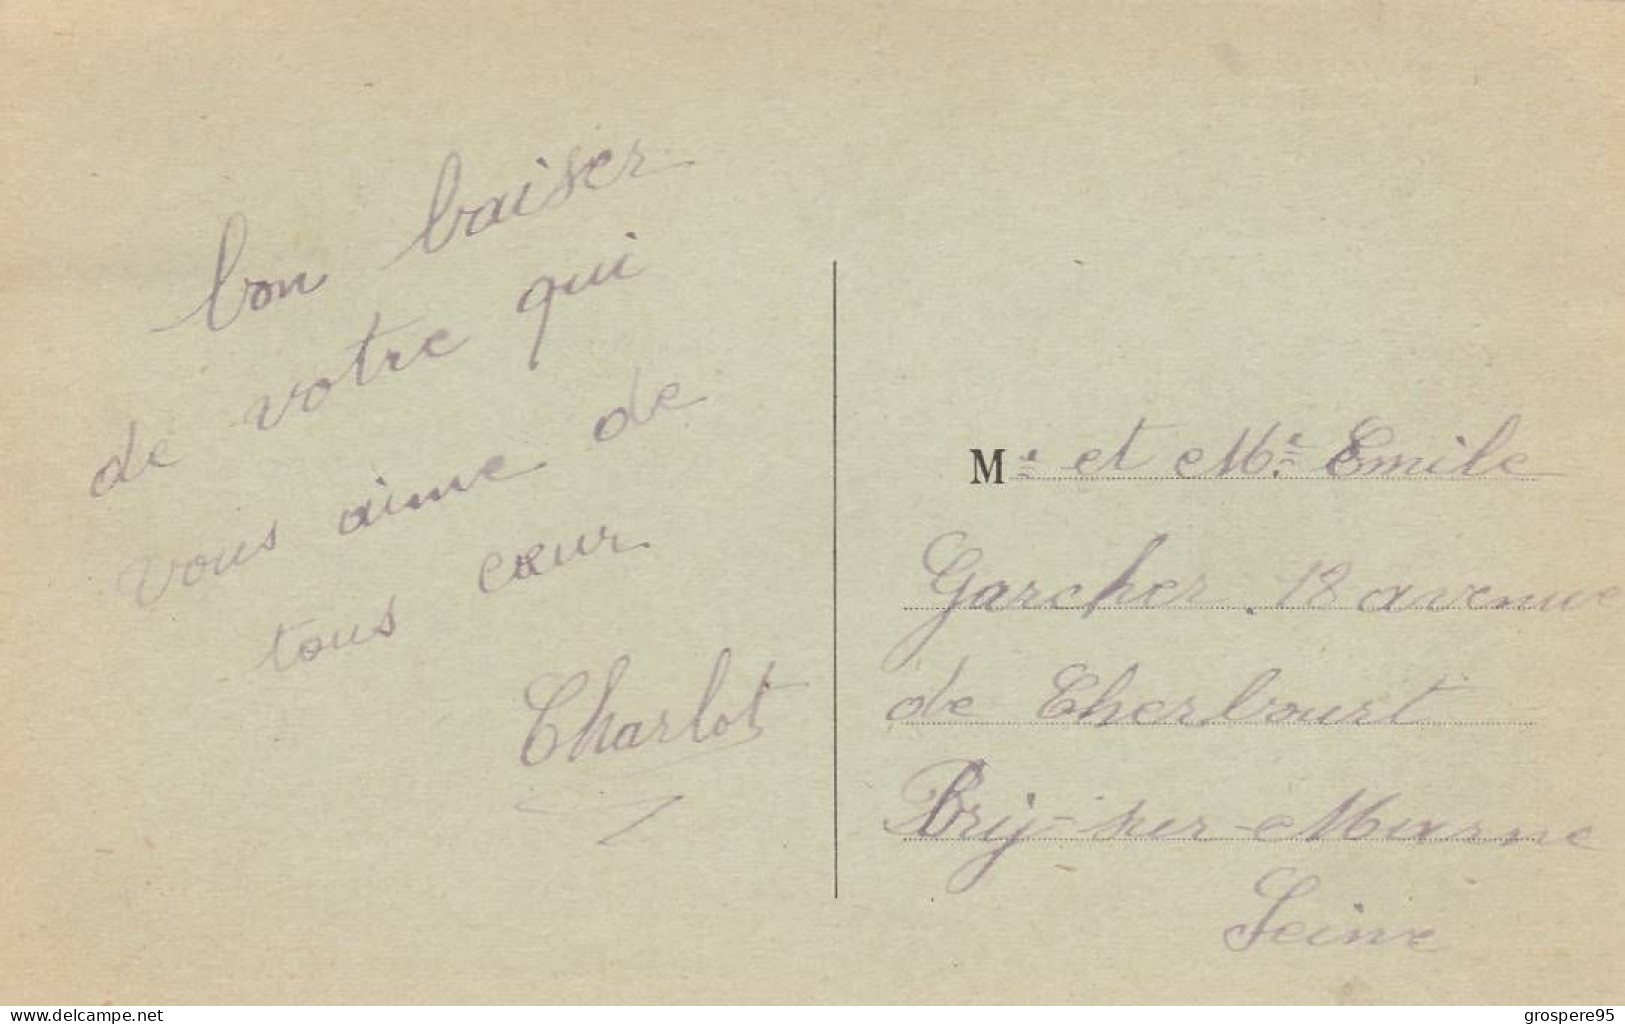 bon baiser
de votre qui
vous aime de
tous cœur
Charlot
Mr et Me Emile
Garcher. 18 avenue
de Cherbourt
Bry-sur-Marne
Seine
www.delcampe.net
grospere95